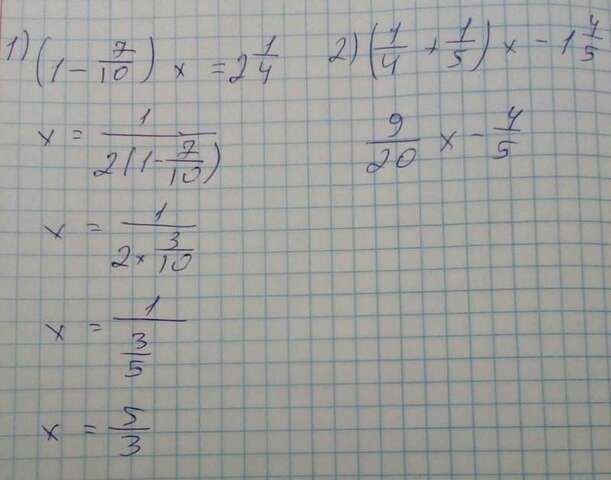 1) (1 - 7/10) x = 2 1/4
x = 1/(2(1 - 7/10))
x = 1/(2 × 3/10)
x = 1/(3/5)
x = 5/3
2) (1/4 + 1/5) x - 1 4/5
9/20 x - 4/5